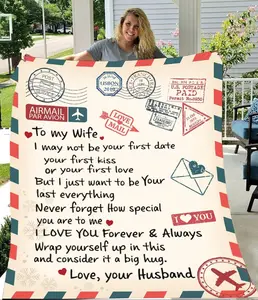 POSTAGE
PAID
AIRMAIL
PAR AVION
LOVE
MAIL
To my Wife,
I may not be your first date
your first kiss
or your first love
But I just want to be Your
last everything
Never forget How special
you are to me
I LOVE YOU
I LOVE YOU Forever & Always
Wrap yourself up in this
and consider it a big hug.
Love, your Husband